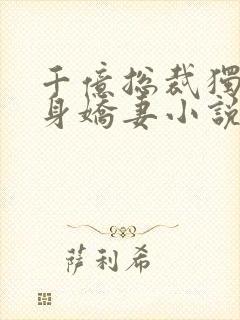 千億總裁獨
身嬌妻小説
薩利希